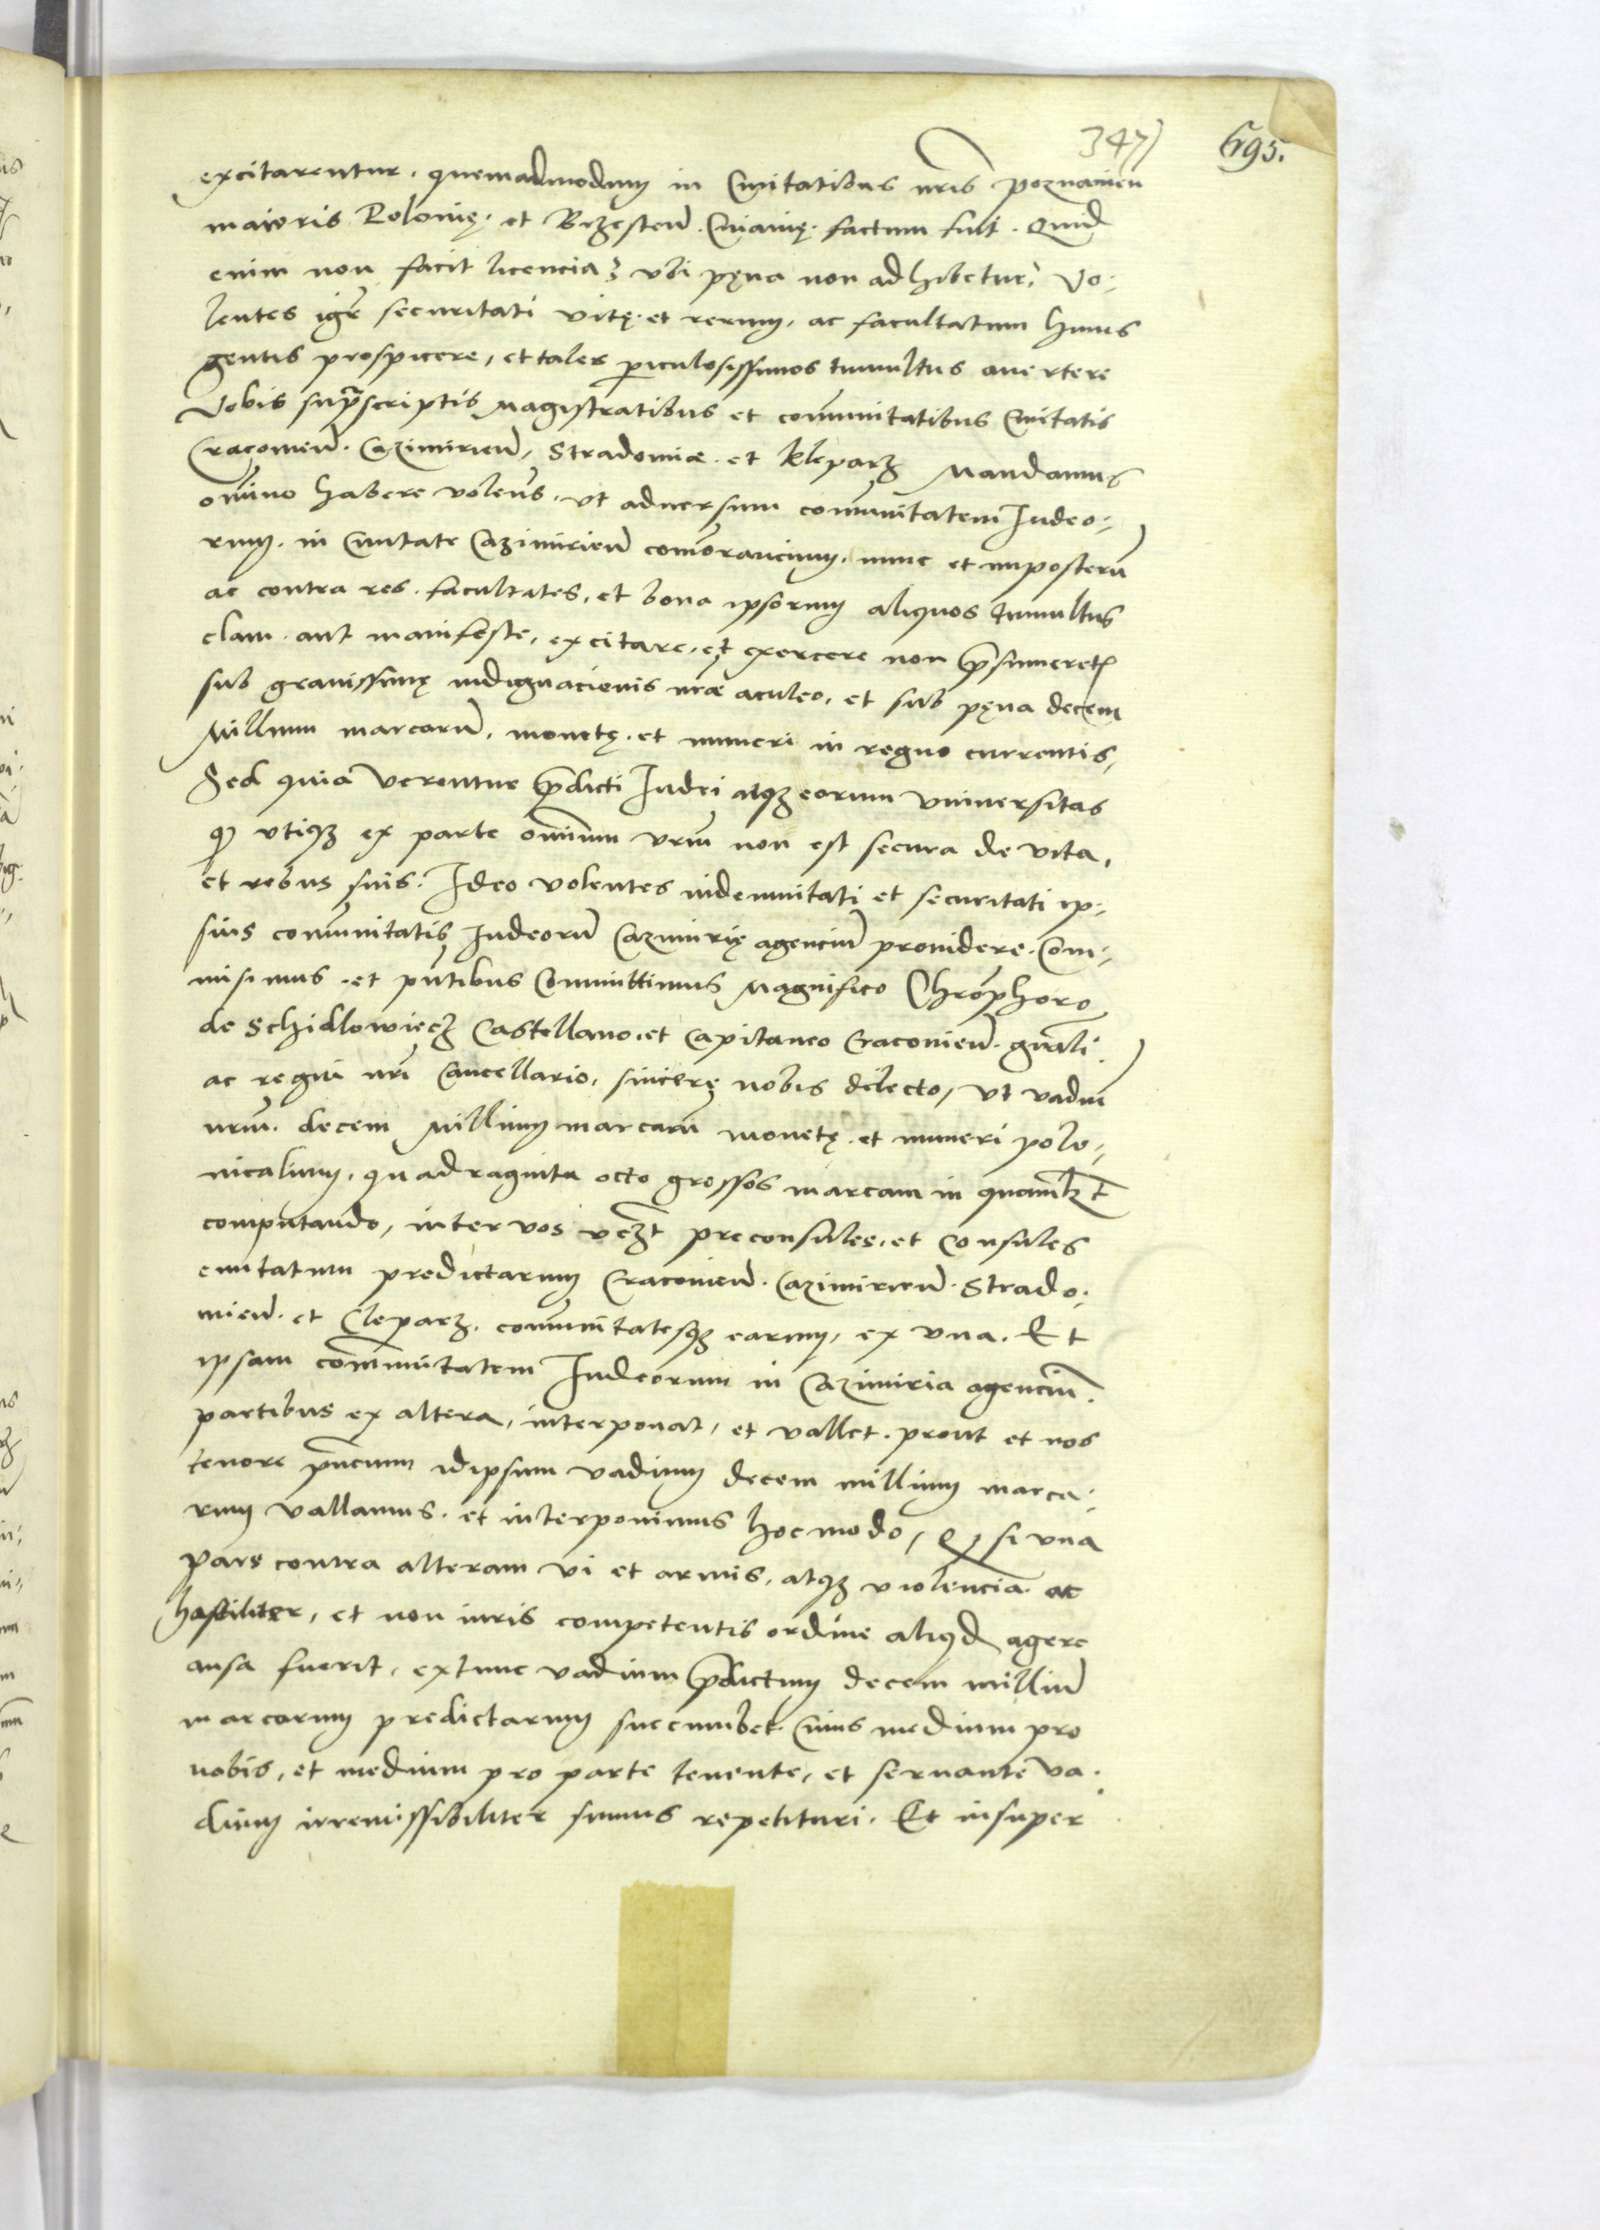 347) 695.
excitarentur. quemadmodum in Civitatibus nris Poznanien
maioris Polonię. et Brzesten. Cuiavię. factum fuit. Quid
enim non facit licencia? vbi pęna non adhibetur? Vo-
lentes igr securitati vitę. et rerum, ac facultatum huius
gentis prospicere, et tales piculosissimos tumultus avertere
Vobis suprascriptis Magistratibus et comunitatibus Civitatis
Cracovien. Cazimirien, Stradomiæ. et Kleparz Mandamus
omnino habere volens, vt adversum comunitatem Iudeo-
rum. in Civitate Cazimirien comorancium, nunc et imposterum
ac contra res. facultates, et bona ipsorum aliquos tumultus
clam. aut manifeste, excitare, et exercere non psumeretis
sub gravissimę indignacionis nræ aculeo, et sub pęna decem
Millium marcarum, monetę. et numeri in regno currentis,
Sed quia verentur pdicti Iudei atqz eorum vniversitas
q vtiqz ex parte omnium vrum non est secura de vita,
et rebus suis. Ideo volentes indemnitati et securitati ip-
sius comunitatis Iudeorum Cazimirię agencium providere. Com-
misimus. et pntibus Committimus Magnifico Chrophoro
de Schidlowiecz Castellano. et Capitaneo Cracovien. gnali
ac regni nri Cancellario, sincerę nobis dilecto, vt vadium
nrum. decem Millium marcarum monetę. et numeri polo-
nicalium, quadraginta octo grossos marcam in quamlzt
computando, inter vos vczt preconsules, et Consules
civitatum predictarum Cracovien. Cazimirien. Strado-
mien. et Cleparz. comunitatesqz earum, ex vna. Et
ipsam communitatem Iudeorum in Cazimiria agencium.
partibus ex altera, interponat, et vallet. prout et nos
tenore pncium idipsum vadium decem millium marca-
rum vallamus. et interponimus hoc modo, Q si vna
pars contra alteram vi et armis, atqz violencia ac
hostiliter, et non iuris competentis ordine aliqd agere
ausa fuerit, extunc vadium pdictum decem millium
marcarum predictarum succumbet. Cuius medium pro
nobis, et medium pro parte tenente, et servante va-
dium irremissibiliter sumus repetituri. Et insuper